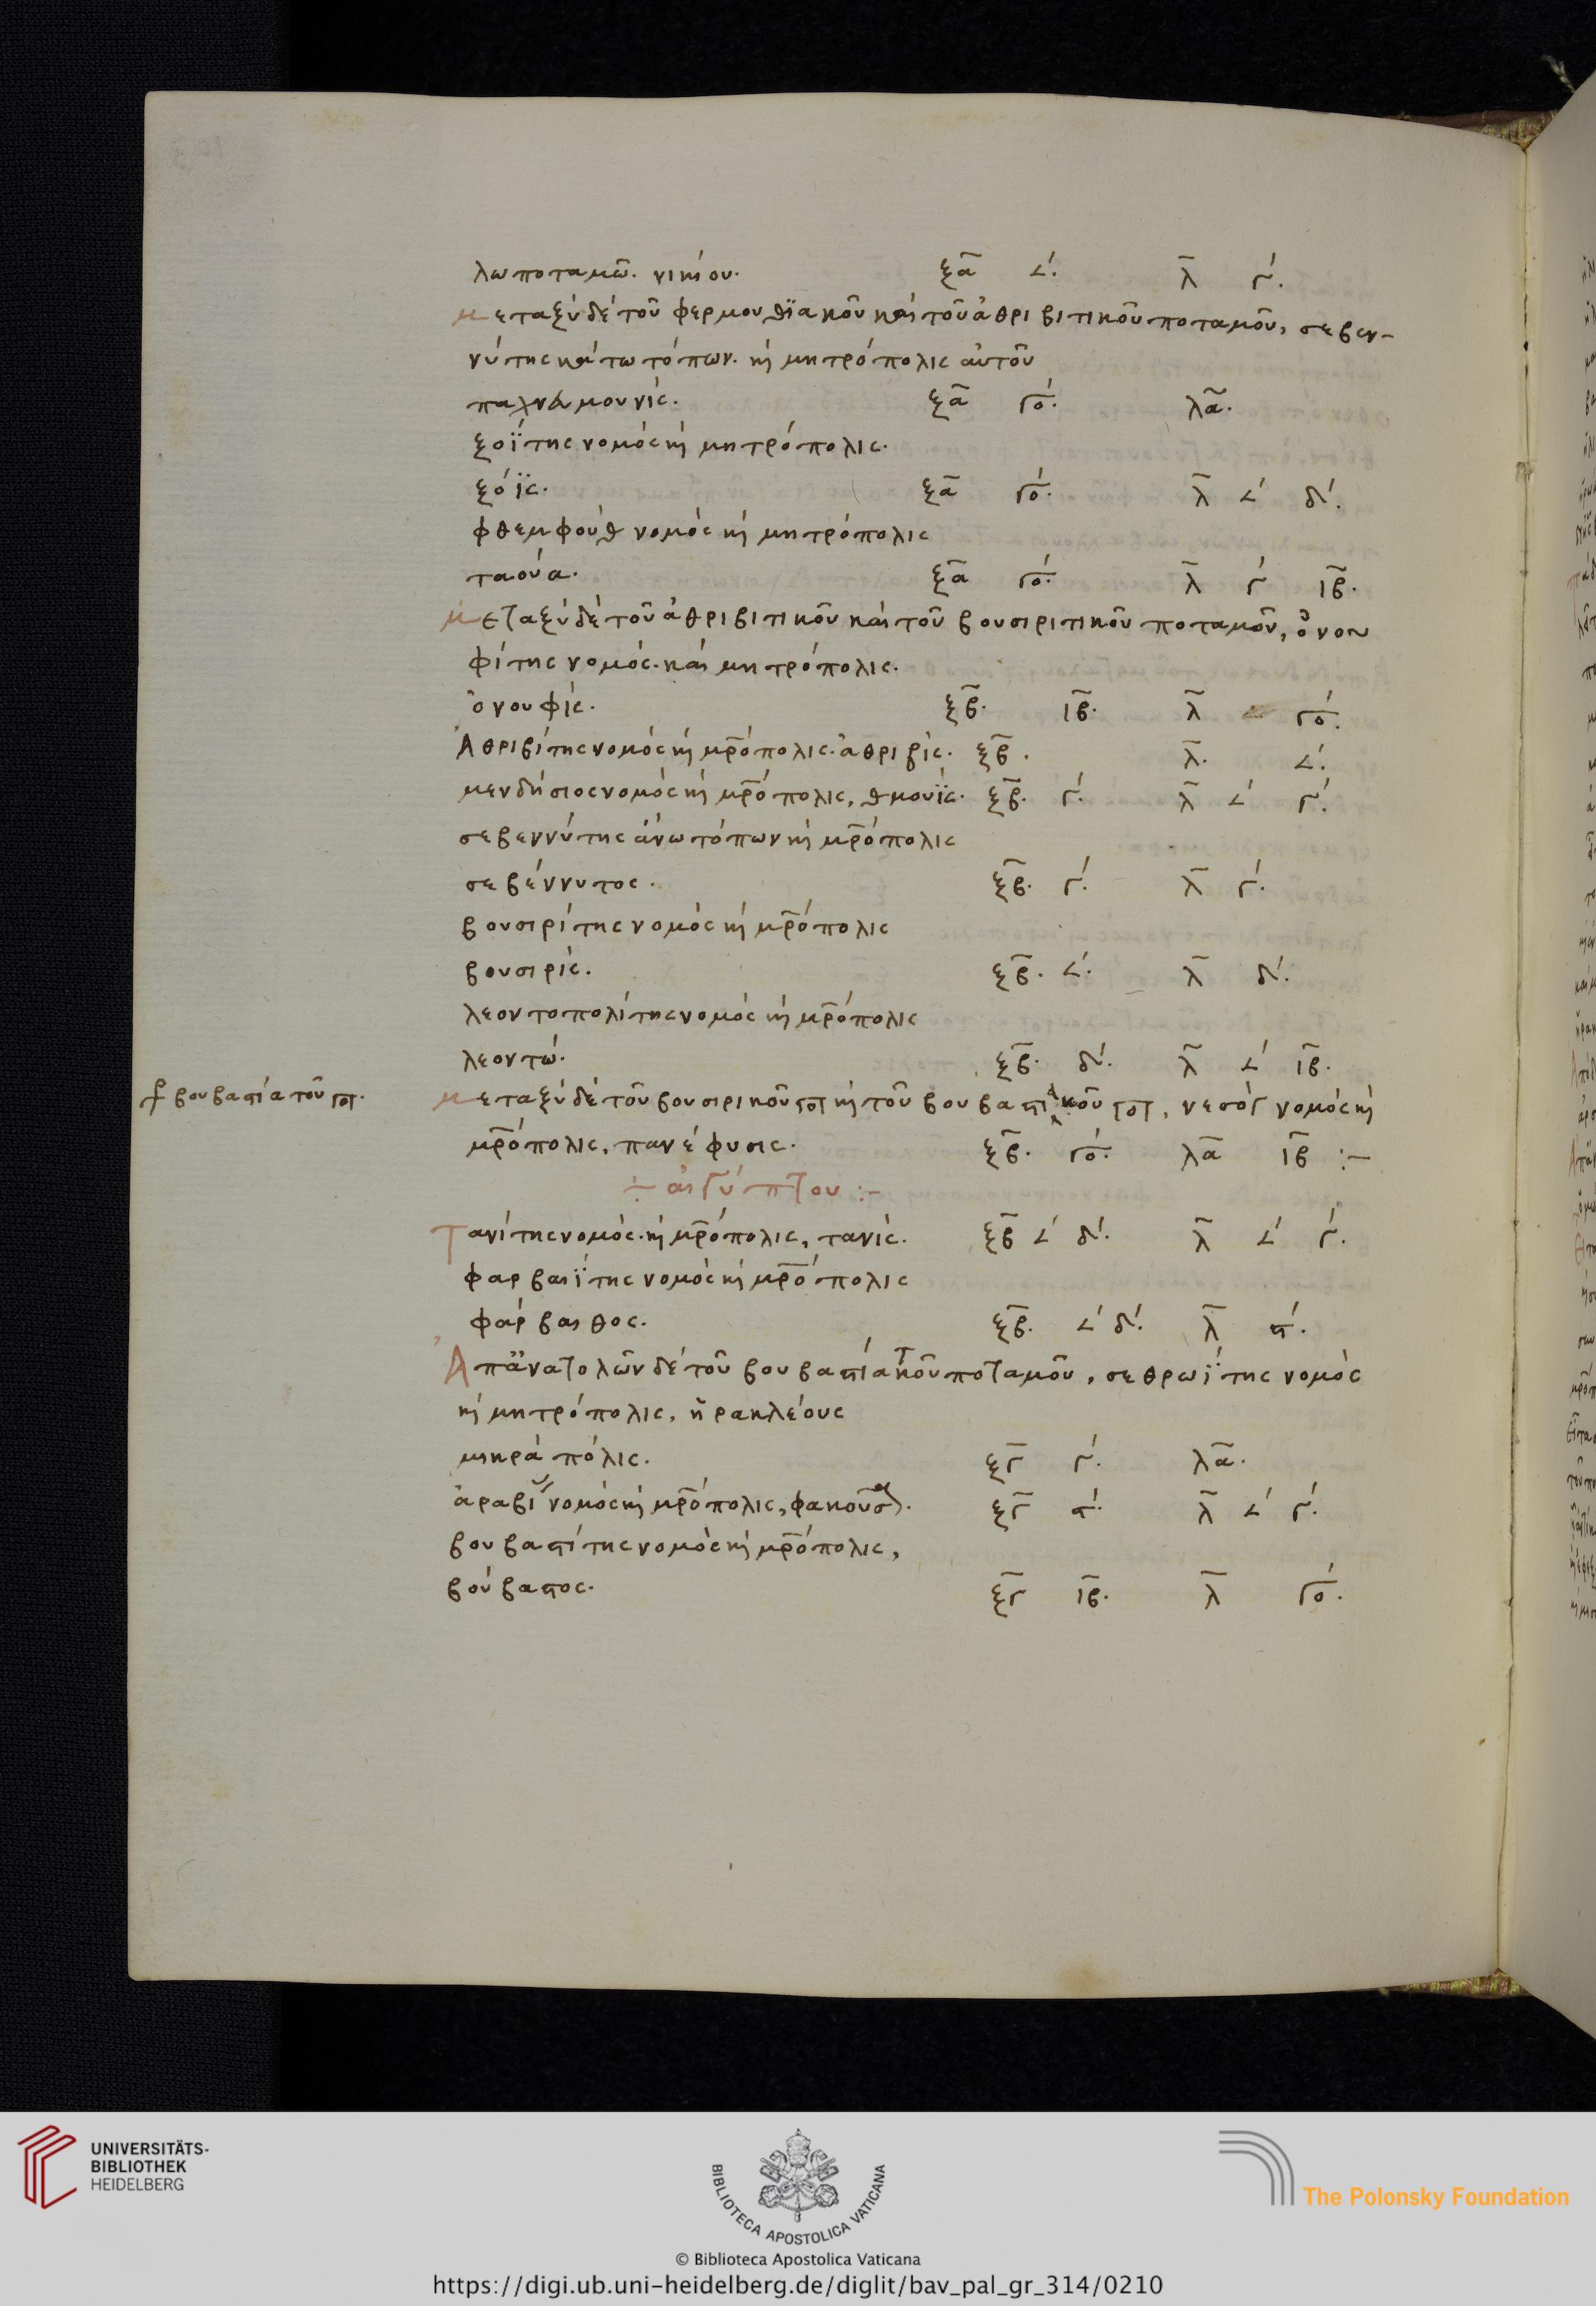 λω ποταμῶ. νικίου. ξᾱ ∠΄. λ̄ γ΄.
μεταξύ δέ τοῦ φερμουθϊακοῦ καί τοῦ ἀθριβιτικοῦ ποταμοῦ, σεβεν-
νύτης κάτω τόπων. κὶ μητρόπολις αὐτοῦ
παχναμουνίς. ξᾱ γο΄. λᾱ.
ξοΐτης νομός κὶ μητρόπολις.
ξόϊς. ξᾱ γο΄. λ̄ ∠΄ δ΄.
φθεμφούθ νομός κὶ μητρόπολις
ταούα. ξᾱ γο΄. λ̄ γ΄ ιβ̄.
μεταξύ δὲ τοῦ ἀθριβιτικοῦ καί τοῦ βουσιριτικοῦ ποταμοῦ, ὀνου
φίτης νομός. καί μητρόπολις.
ὀνουφίς. ξβ̄. ιβ̄. λ̄ γο΄.
Ἀθριβίτης νομός κὶ μρ̄όπολις. ἀθριβίς. ξβ̄. λ̄. ∠΄.
μενδήσιος νομός κὶ μρ̄όπολις, θμουΐς. ξβ̄. γ΄. λ̄ ∠΄ γ΄.
σεβεννύτης ἄνω τόπων κὶ μρ̄όπολις
σεβέννυτος. ξβ̄. γ΄. λ̄ γ΄.
βουσιρίτης νομός κὶ μρ̄όπολις
βουσιρίς. ξβ̄. ∠΄. λ̄ δ΄.
λεοντοπολίτης νομός κὶ μρ̄όπολις
λεοντώ. ξβ̄. δ΄. λ̄ ∠΄ ιβ̄.
βουβαστία τοῦ ποτ.
μεταξύ δέ τοῦ βουσιρικοῦ ποτ κὶ τοῦ βουβαστιακοῦ ποτ, νεσὸτ νομός κὶ
μρ̄όπολις, πανέφυσις. ξβ̄. γο΄. λᾱ ιβ̄ :-
÷ αἰγύπτου :-
Τανίτης νομός. κὶ μρ̄όπολις, τανίς. ξβ̄ ∠΄ δ΄. λ̄ ∠΄ γ΄.
φαρβαιΐτης νομός κὶ μρ̄όπολις
φάρβαιθος. ξβ̄. ∠΄ δ΄. λ̄ ϛ΄.
Ἀπ ἀνατολῶν δέ τοῦ βουβαστίατκοῦ ποταμοῦ, σεθρωΐτης νομός
κὶ μητρόπολις, ἡρακλέους
μικρά πόλις. ξγ̄ γ΄. λᾱ.
ἀραβι νομός κὶ μρ̄όπολις, φακοῦσα. ξγ̄ ϛ΄. λ̄ ∠΄ γ΄.
βουβαστίτης νομός κὶ μρ̄όπολις,
βούβαστος. ξγ̄ ιβ̄. λ̄ γο΄.
UNIVERSITÄTS-
BIBLIOTHEK
HEIDELBERG
BIBLIOTECA APOSTOLICA VATICANA
The Polonsky Foundation
© Biblioteca Apostolica Vaticana
https://digi.ub.uni-heidelberg.de/diglit/bav_pal_gr_314/0210